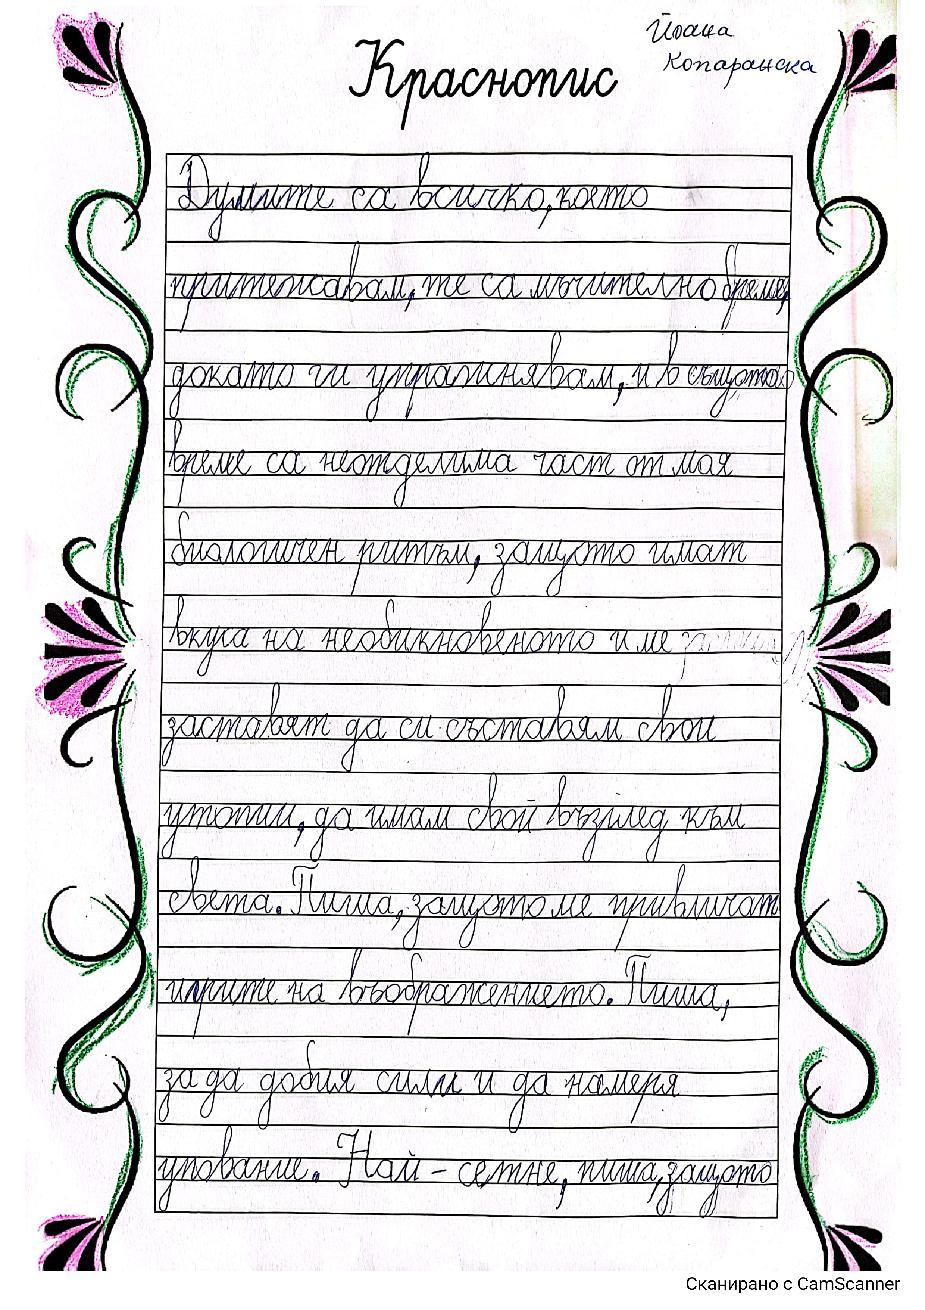 Йоана
Копаранска
Краснопис
Думите са всичко, което
притежавам, те са мъчително бреме,
докато ги упражнявам, и в същото
време са неотделима част от мая
биологичен ритъм, защото имат
вкуса на необикновеното и ме
заставят да си съставям свои
утопии, да имам свой възглед към
света. Пиша, защото ме привличат
игрите на въображението. Пиша,
за да добия сили и да намеря
упование. Най - сетне, пиша, защото
Сканирано с CamScanner